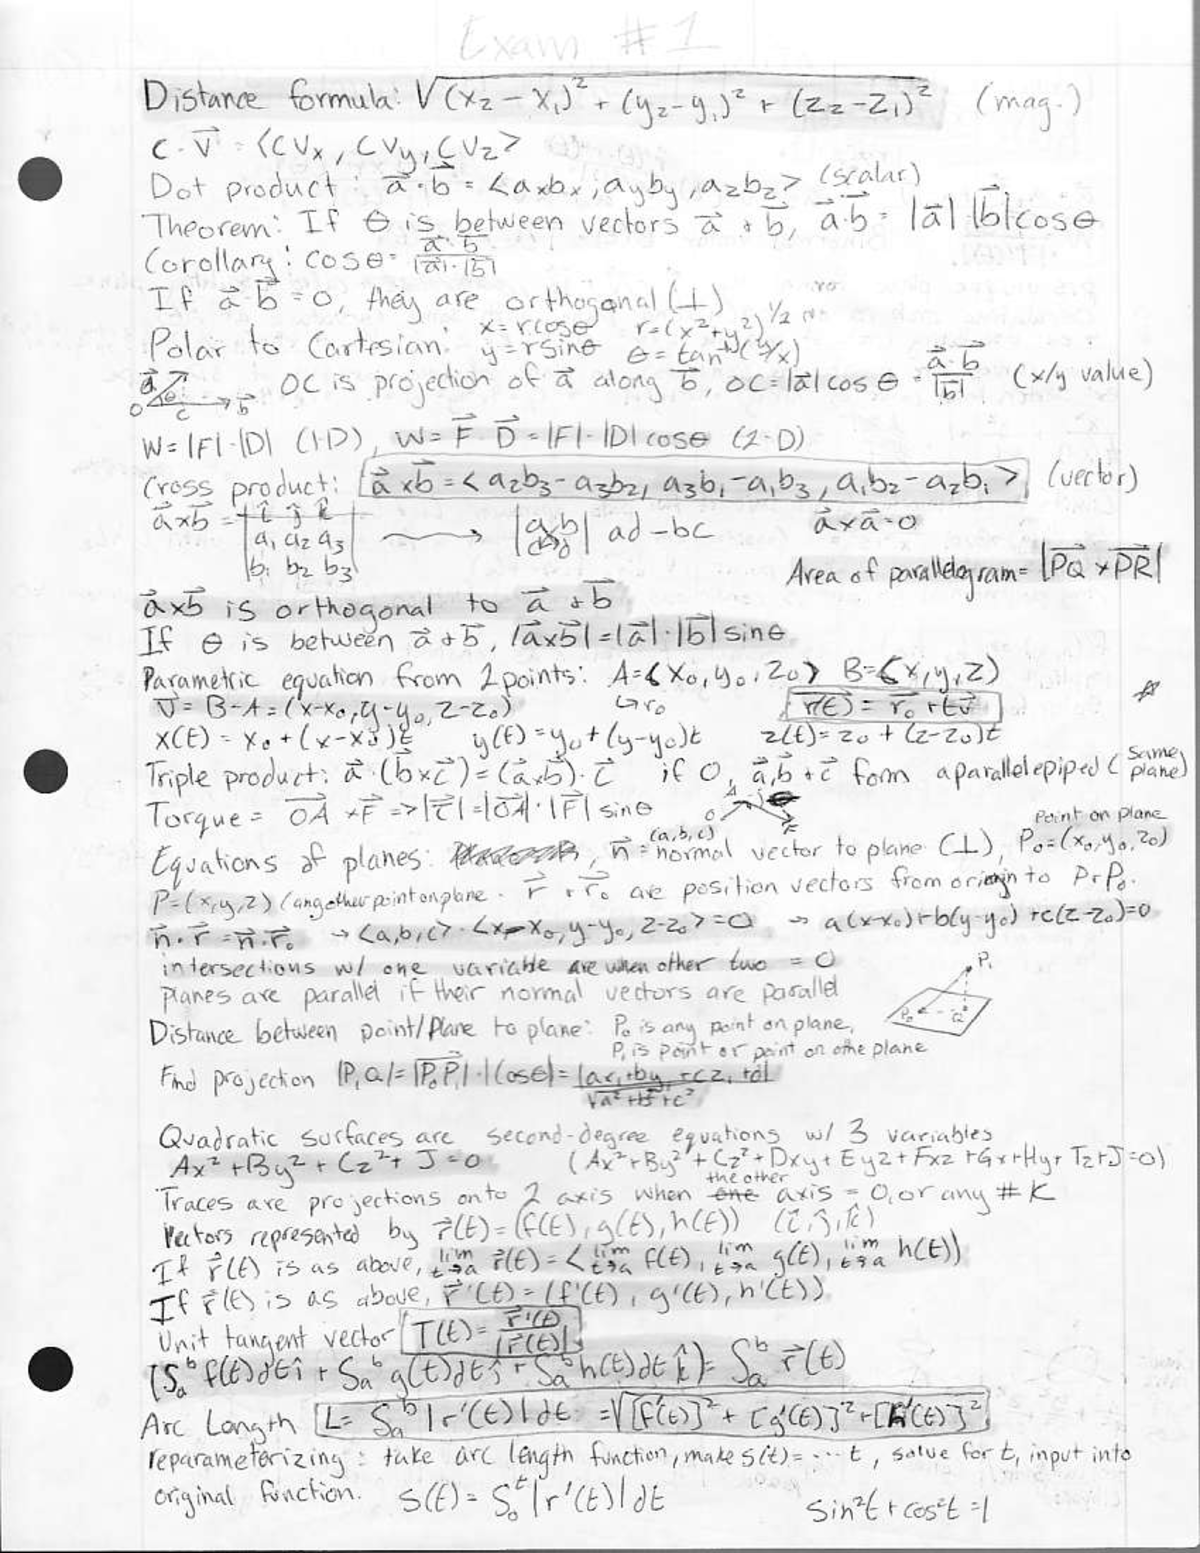 Exam #1
Distance formula: √(x₂-x₁)² + (y₂-y₁)² + (z₂-z₁)² (mag.)
c·v⃗ = <cvx, cvy, cvz>
Dot product: a⃗·b⃗ = <axbx, ayby, azbz> (scalar)
Theorem: If θ is between vectors a⃗ + b⃗, a⃗·b⃗ = |a⃗| |b⃗|cosθ
Corollary: cosθ = a⃗·b⃗ / |a⃗|·|b⃗|
If a⃗·b⃗ = 0, they are orthogonal (⊥)
Polar to Cartesian: x=rcosθ y=rsinθ r=(x²+y²)^1/2 θ=tan⁻¹(y/x)
a⃗ θ O C b⃗ OC is projection of a⃗ along b⃗, OC=|a⃗|cosθ = a⃗·b⃗ / |b⃗| (x/y value)
W=|F|·|D| (1-D), W=F⃗·D⃗=|F|·|D|cosθ (2-D)
Cross product: a⃗×b⃗ = <a₂b₃-a₃b₂, a₃b₁-a₁b₃, a₁b₂-a₂b₁> (vector)
a⃗×b⃗ = |î ĵ k̂ → |a b| ad-bc a⃗×a⃗=0
a₁ a₂ a₃ c d
b₁ b₂ b₃| Area of parallelogram = |PQ⃗ × PR⃗|
a⃗×b⃗ is orthogonal to a⃗ + b⃗
If θ is between a⃗+b⃗, |a⃗×b⃗|=|a⃗|·|b⃗|sinθ
Parametric equation from 2 points: A=(x₀,y₀,z₀) B=(x,y,z)
v⃗=B-A=(x-x₀,y-y₀,z-z₀) ↳r₀ r⃗(t)=r⃗₀+tv⃗
x(t)=x₀+(x-x₀)t y(t)=y₀+(y-y₀)t z(t)=z₀+(z-z₀)t
Triple product: a⃗·(b⃗×c⃗)=(a⃗×b⃗)·c⃗ if 0, a⃗,b⃗+c⃗ form a parallelepiped (same plane)
Torque = OA⃗×F⃗ => |τ⃗|=|OA⃗|·|F⃗|sinθ O A F
Equations of planes: n⃗=(a,b,c) normal vector to plane (⊥), point on plane P₀=(x₀,y₀,z₀)
P=(x,y,z) (any other point on plane. r⃗ + r⃗₀ are position vectors from origin to P+P₀.
n⃗·r⃗=n⃗·r⃗₀ → <a,b,c>·<x-x₀,y-y₀,z-z₀>=0 → a(x-x₀)+b(y-y₀)+c(z-z₀)=0
intersections w/ one variable are when other two = 0 P₁
planes are parallel if their normal vectors are parallel P₀ Q
Distance between point/plane to plane: P₀ is any point on plane,
P₁ is point or point on othe plane
Find projection |P₁Q|=|P₀P₁⃗|·|cosθ|=|ax₁+by₁+cz₁+d| / √a²+b²+c²
Quadratic surfaces are second-degree equations w/ 3 variables
Ax²+By²+Cz²+J=0 (Ax²+By²+Cz²+Dxy+Eyz+Fxz+Gx+Hy+Iz+J=0)
Traces are projections onto 2 axis when one the other axis = 0, or any # K
Vectors represented by r⃗(t)=(f(t),g(t),h(t)) (î,ĵ,k̂)
If r⃗(t) is as above, lim t→a r⃗(t)=<lim t→a f(t), lim t→a g(t), lim t→a h(t)>
If r⃗(t) is as above, r⃗'(t)=(f'(t), g'(t), h'(t))
Unit tangent vector T(t)= r⃗'(t) / |r⃗'(t)|
[∫ₐᵇf(t)dt î + ∫ₐᵇg(t)dt ĵ + ∫ₐᵇh(t)dt k̂]= ∫ₐᵇ r⃗(t)
Arc Length L= ∫ₐᵇ|r'(t)|dt =√[f'(t)]²+[g'(t)]²+[h'(t)]²
reparameterizing: take arc length function, make s(t)=...t, solve for t, input into
original function. s(t)=∫₀ᵗ|r'(t)|dt sin²t+cos²t=1